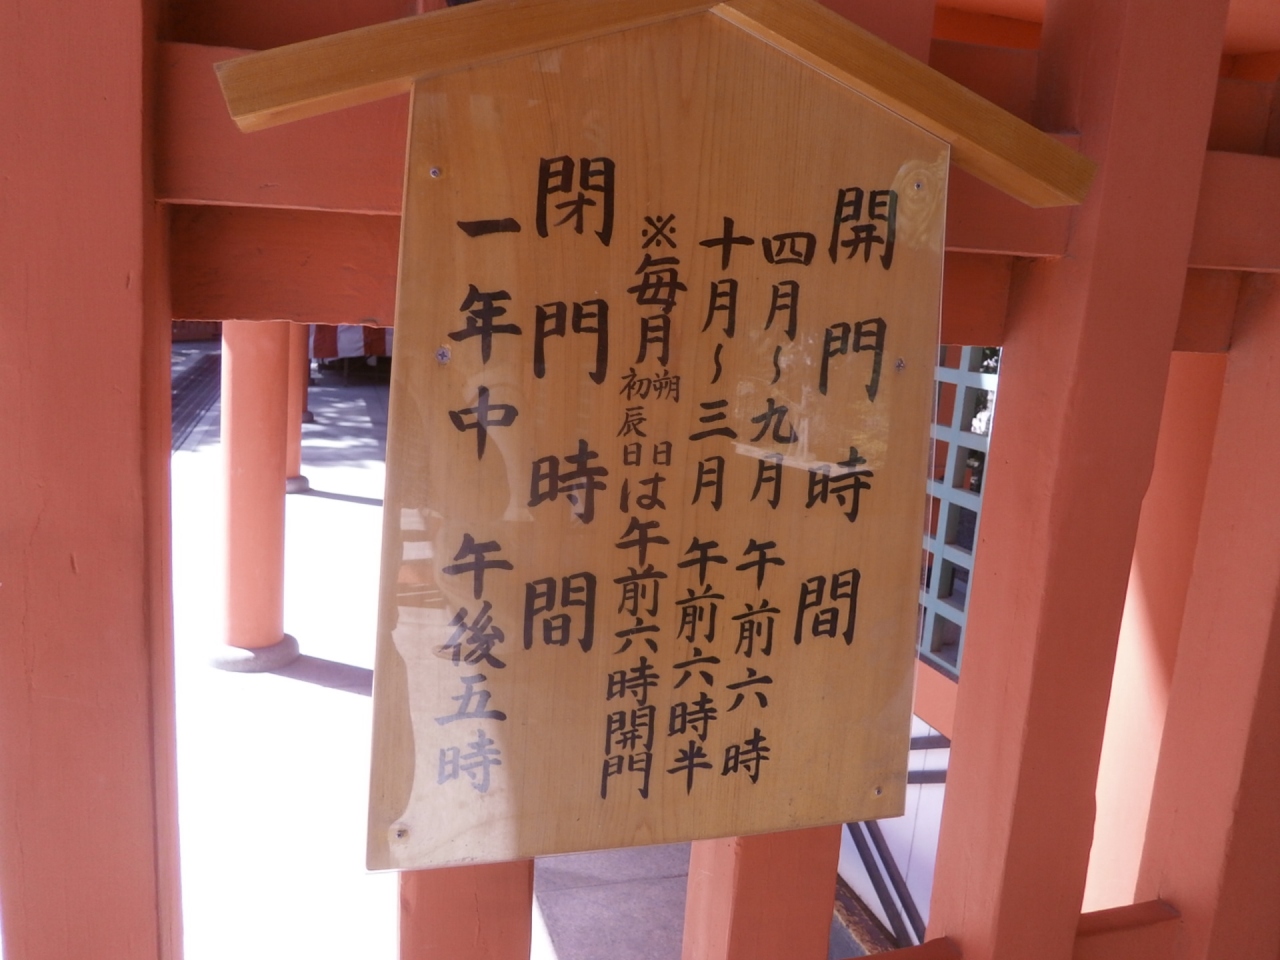 開門時間
四月〜九月 午前六時
十月〜三月 午前六時半
※毎月朔日初辰日は午前六時開門
閉門時間
一年中 午後五時